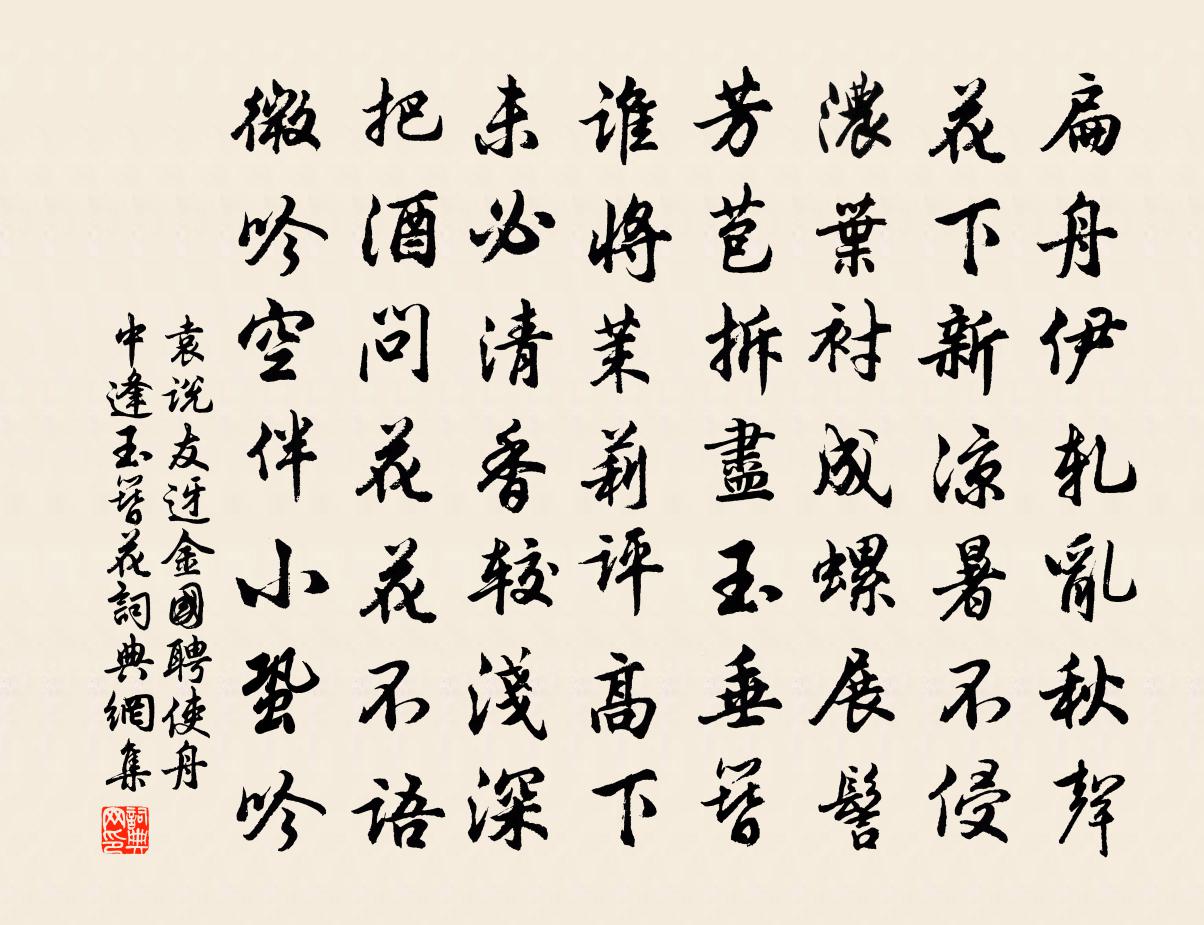 扁舟伊軋亂秋聲
花下新涼暑不侵
濃葉襯成螺展髻
芳苞拆盡玉垂簪
誰將茉莉評高下
未必清香較淺深
把酒問花花不語
微吟空伴小蛩吟
袁說友迓金國聘使舟
中逢玉簪花詞典網集
詞典
网印